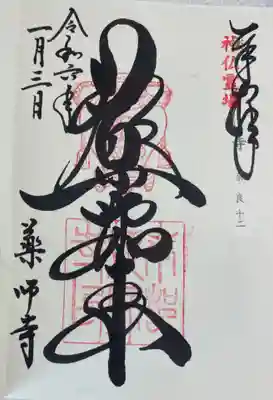 奉拝
神仏霊場
奈良十二
薬師如来
令和六年
一月三日
薬師寺